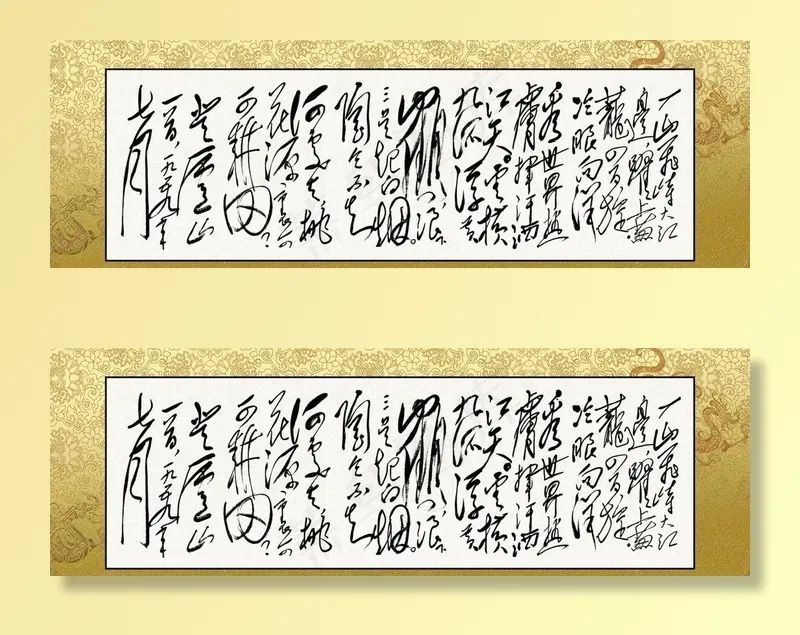 一山飛峙大江
邊躍上葱
蘢四百旋
冷眼向洋
看世界热
膚揮汗洒
江天雲横
九派浮黄
鶴浪下
三吴起白烟
陶令不知
何處去桃
花源裏
可耕田
登廬山
一九五九年
七月
一山飛峙大江
邊躍上葱
蘢四百旋
冷眼向洋
看世界热
膚揮汗洒
江天雲横
九派浮黄
鶴浪下
三吴起白烟
陶令不知
何處去桃
花源裏
可耕田
登廬山
一九五九年
七月